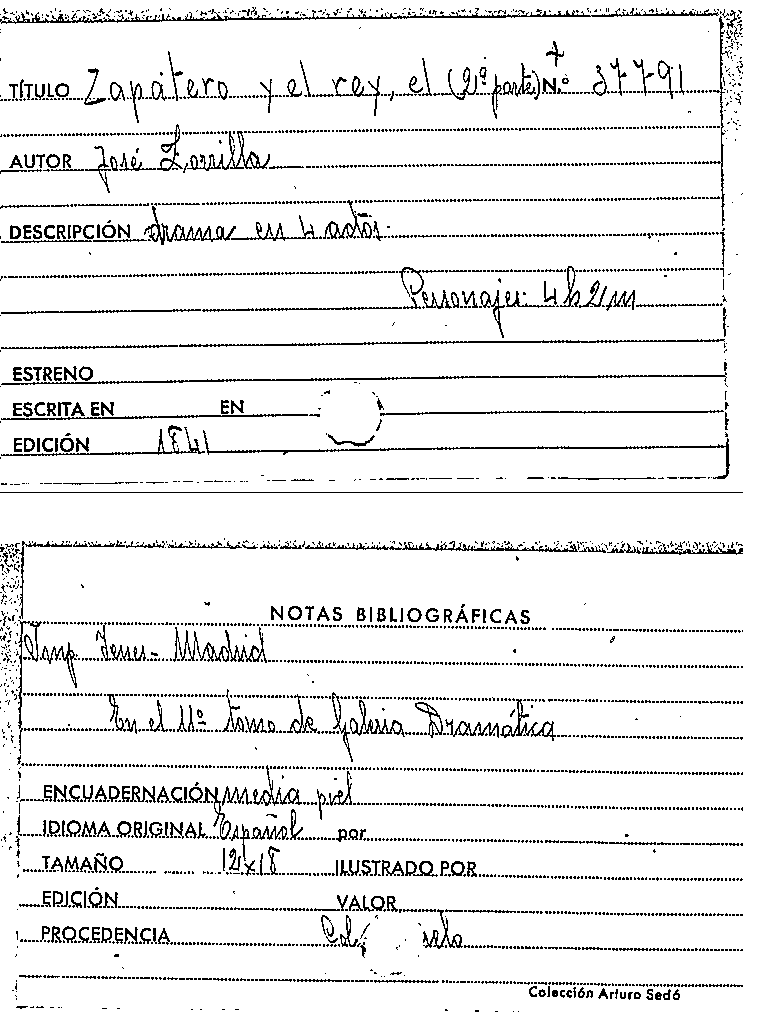 TÍTULO Zapatero y el rey, el (2ª parte) N.º 37791
AUTOR José Zorrilla
DESCRIPCIÓN drama en 4 actos.
Personajes: 4h 2m
ESTRENO
ESCRITA EN EN
EDICIÓN 1841
NOTAS BIBLIOGRÁFICAS
Imp Yenes - Madrid
En el 11º tomo de Galeria Dramática
ENCUADERNACIÓN media piel
IDIOMA ORIGINAL Español por
TAMAÑO 12x18 ILUSTRADO POR
EDICIÓN VALOR
PROCEDENCIA
Colección Arturo Sedó